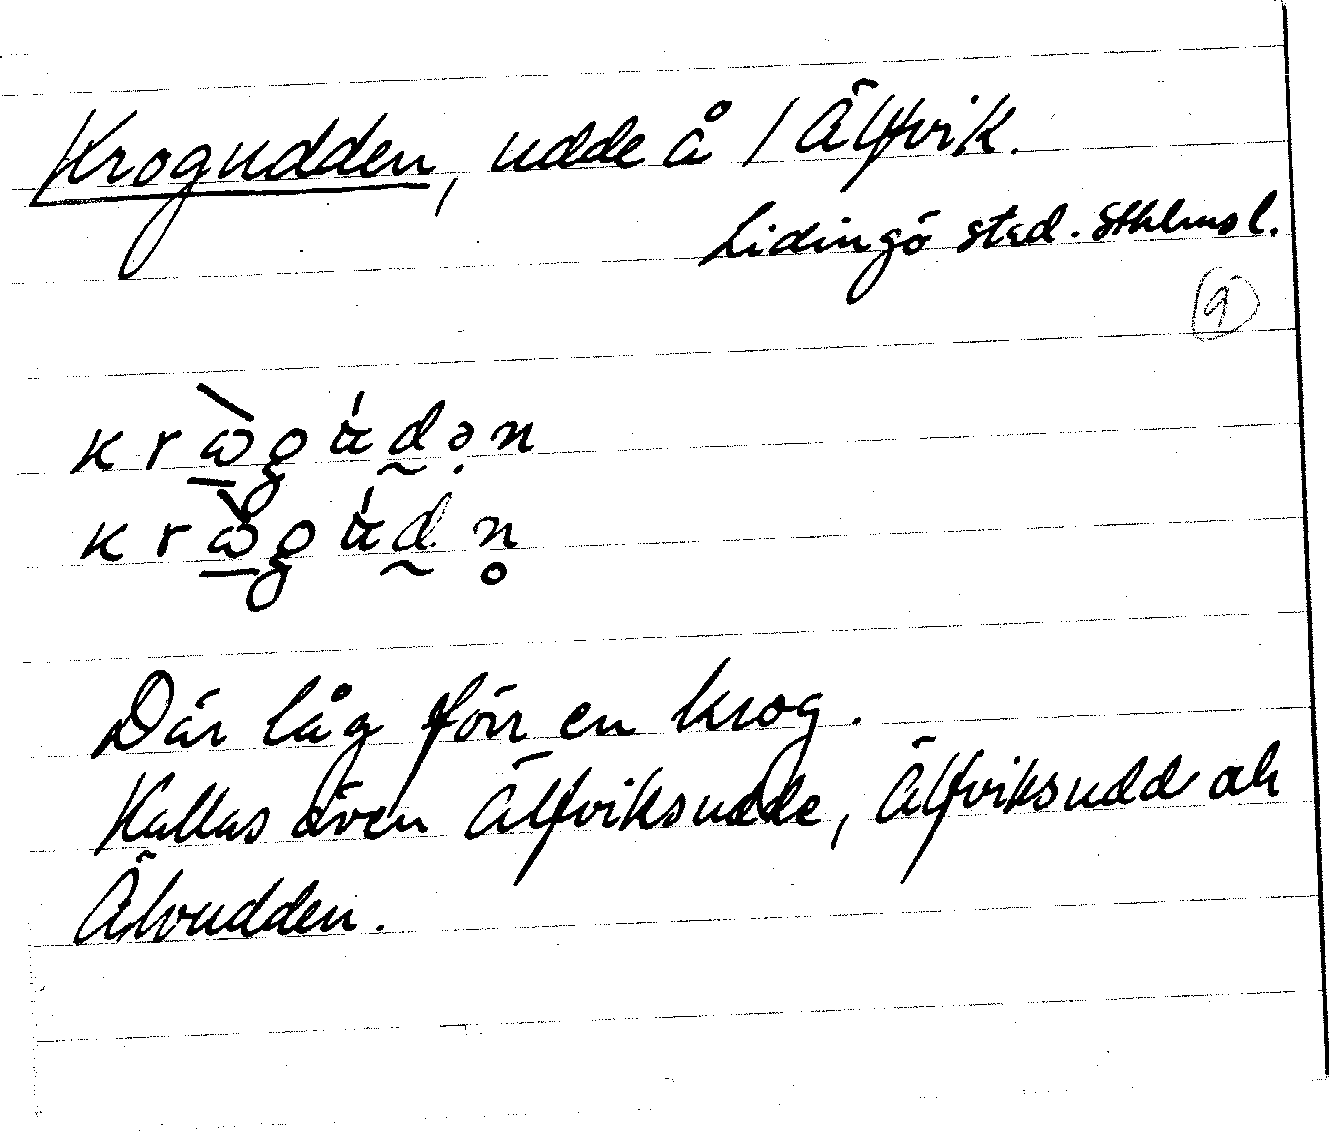 Krogudden, udde å / Älfvik.
Lidingö stad. Sthlms l.
9
Där låg förr en krog.
Kallas även Älfviksudde, Älfviksudd och
Älvudden.